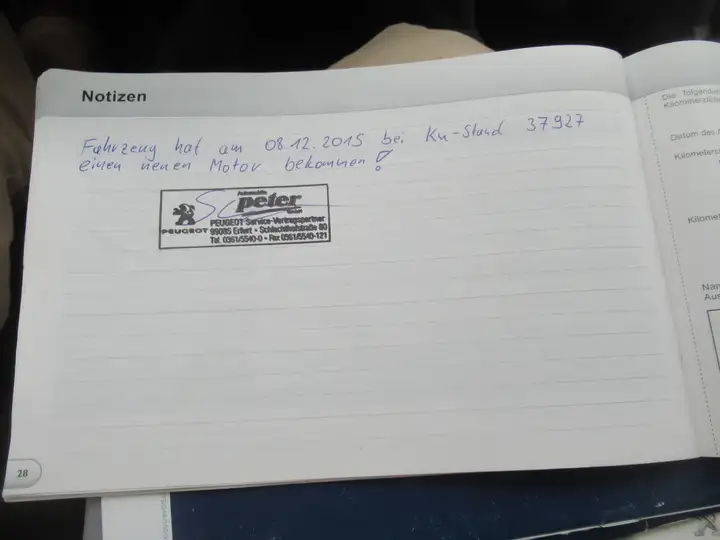 Notizen
Fahrzeug hat am 08.12.2015 bei Km-Stand 37927
einen neuen Motor bekommen!
Automobile
peter
GmbH
PEUGEOT
PEUGEOT Service-Vertragspartner
99085 Erfurt • Schlachthofstraße 80
Tel. 0361/5540-0 • Fax 0361/5540-121
28
Die folgenden
Kilometerstän
Datum des A
Kilometerst
Kilomet
Nam
Aus